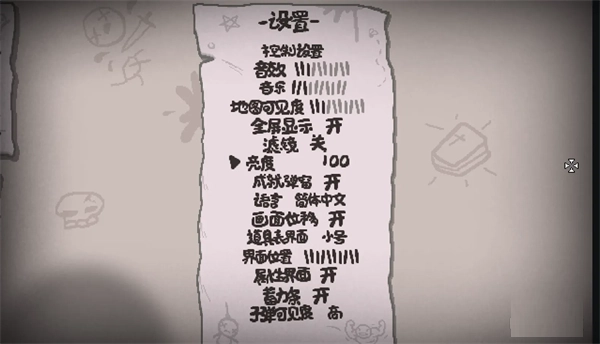 -设置-
控制设置
音效
音乐
地图可见度
全屏显示 开
滤镜 关
亮度 100
成就弹窗 开
语言 简体中文
画面位移 开
道具表界面 小号
界面位置
属性界面 开
蓄力条 开
子弹可见度 高